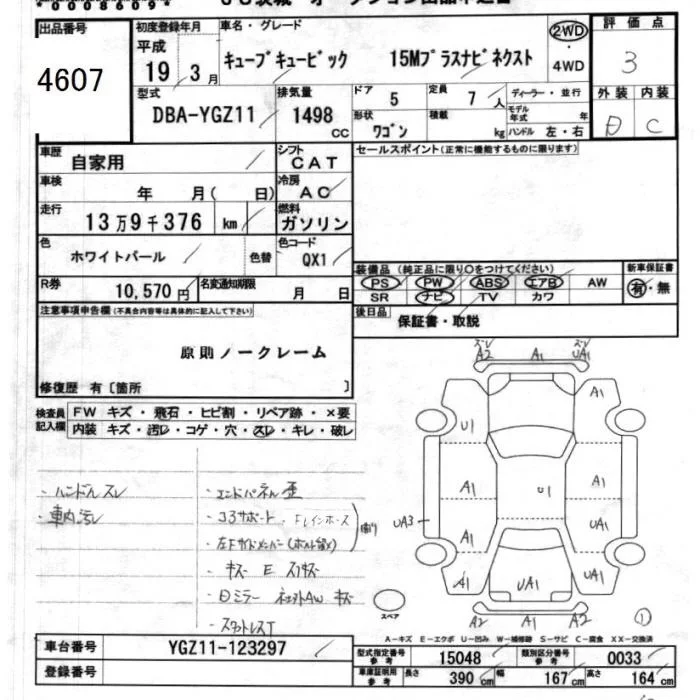 *0008609*
出品番号
4607
初度登録年月
平成
19年3月
車名・グレード
キューブキュービック 15Mプラスナビネクスト
2WD
・
4WD
評価点
3
外装 内装
D C
型式
DBA-YGZ11
排気量
1498
cc
ドア
5
定員
7人
形状
ワゴン
積載
kg
ディーラー・並行
モデル年式 年
ハンドル 左・右
車歴
自家用
シフト
CAT
車検
年 月( 日)
冷房
AC
走行
13万9千376 km
燃料
ガソリン
色
ホワイトパール
色替
色コード
QX1
R券
10,570円
名変通知期限
月 日
セールスポイント(正常に機能するものに限ります)
装備品 (純正品に限り○をつけてください)
PS PW ABS エアB AW
SR ナビ TV カワ
新車保証書
有・無
後日品
保証書・取説
注意事項申告欄(不具合内容等は具体的に記入して下さい)
原則ノークレーム
修復歴 有〔箇所 〕
検査員
記入欄
FW キズ・飛石・ヒビ割・リペア跡・×要
内装 キズ・汚レ・コゲ・穴・スレ・キレ・破レ
・ハンドルスレ
・車内汚レ
・エンドパネル歪
・コアサポート、FLインホース
・左Fサイドメンバー(ホルト留メ)
・キズ E スリキズ
・Dミラー 社外AW キズ
・スタットレスT
スレ
A2 A1 UA1
スレ
U1 A1
A1 U1 A1
UA3 A1 UA1
A1 UA1 UA1
A2 A1 A2
スペア
①
A-キズ E-エクボ U-凹み W-補修跡 S-サビ C-腐食 XX-交換済
車台番号
YGZ11-123297
登録番号
型式指定番号
参考
15048
類別区分番号
参考
0033
車庫証明用
参考
長さ 390cm 幅 167cm 高さ 164cm